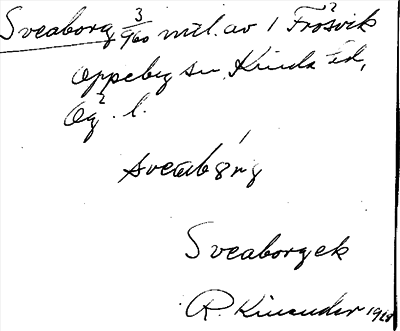 Sveaborg 3/960 mtl. av 1 Frösvik
Oppeby sn, Kinda hd,
Ög. l.
sveabórg
Sveaborgek
R. Kinander 1968